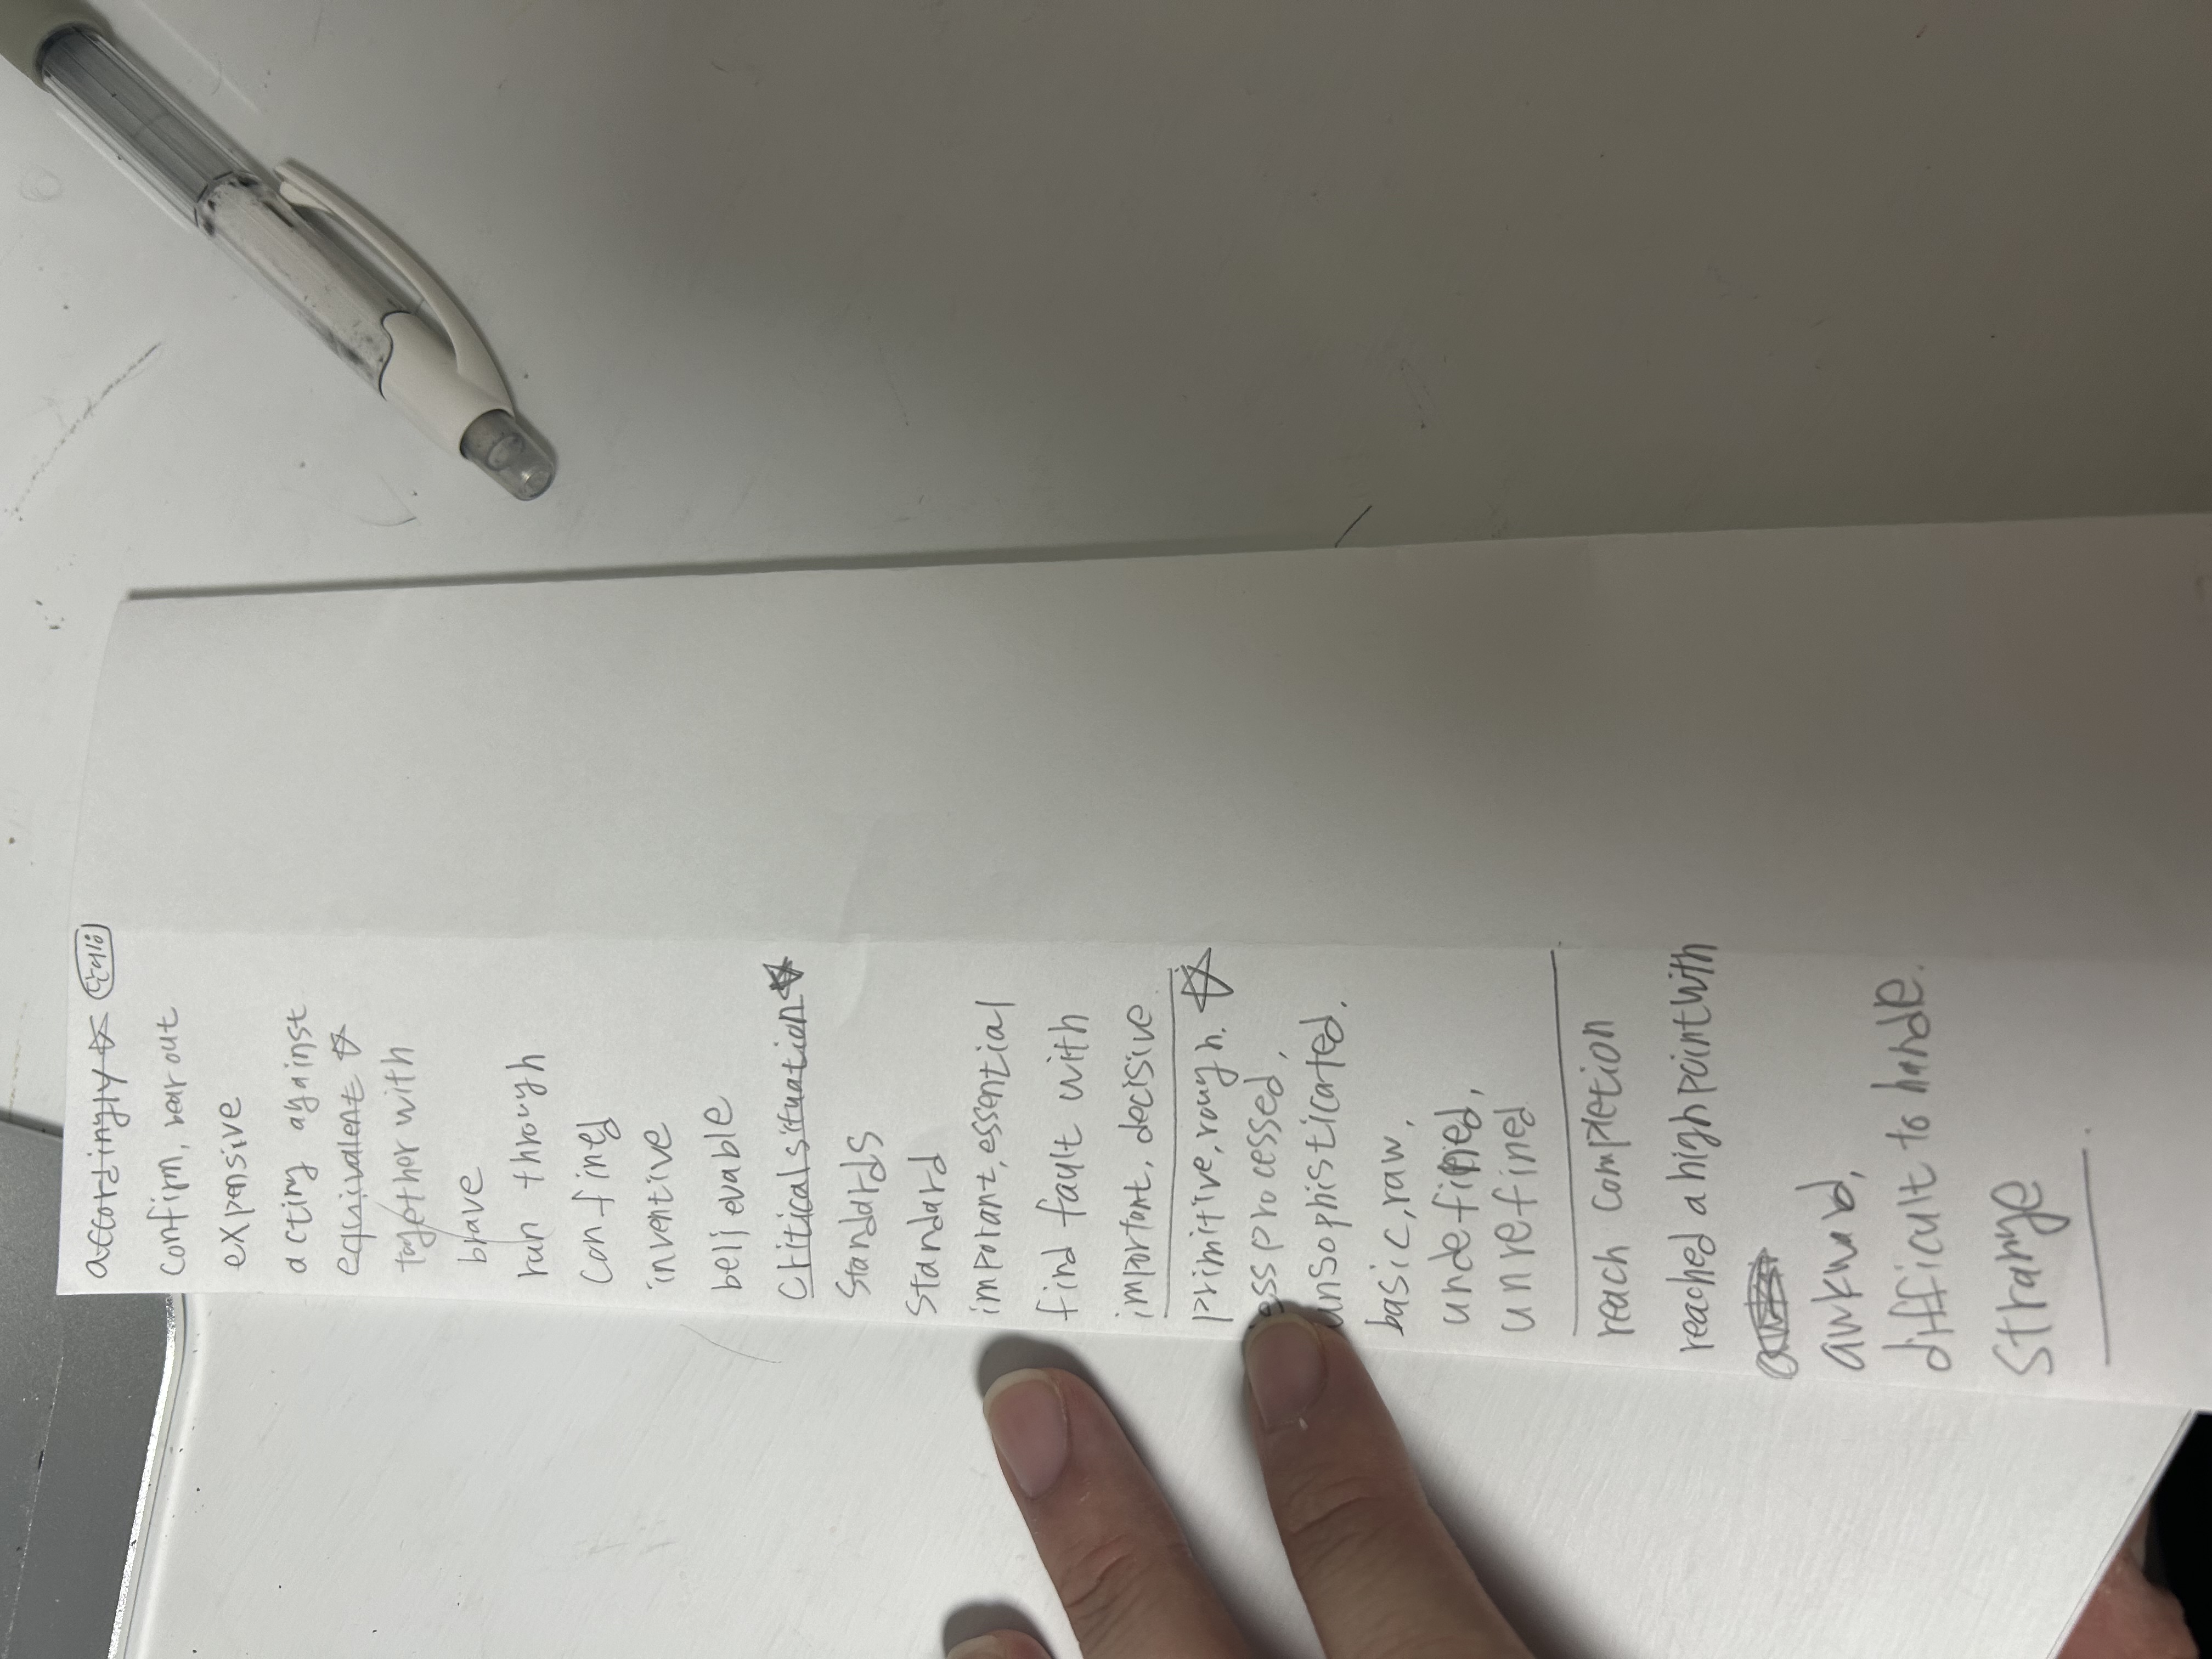 accordingly ☆ 단어
confirm, bear out
expensive
acting against
equivalent ☆
together with
brave
run through
confined
inventive
believable
critical situation ☆
Standards
Standard
imporant, essential
find fault with
important, decisive
primitive, rough. ☆
ess processed,
unsophisticated.
basic, raw,
undefined,
unrefined
reach completion
reached a high point with
awkward,
difficult to hande.
Strange